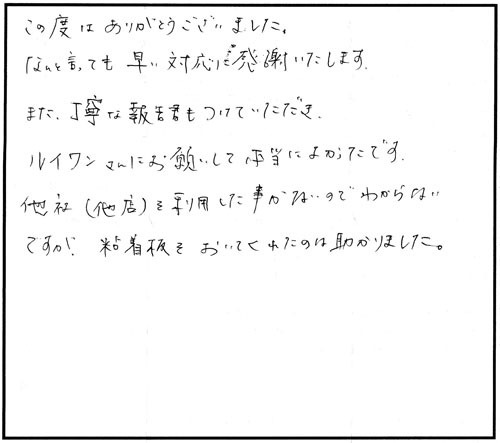 この度は ありがとうございました。
なんと言っても 早い 対応に感謝いたします。
また、丁寧な報告書もつけていただき、
ルイワンさんにお願いして本当によかったです。
他社(他店)を利用した事がないのでわからない
ですが、粘着板をおいてくれたのは助かりました。